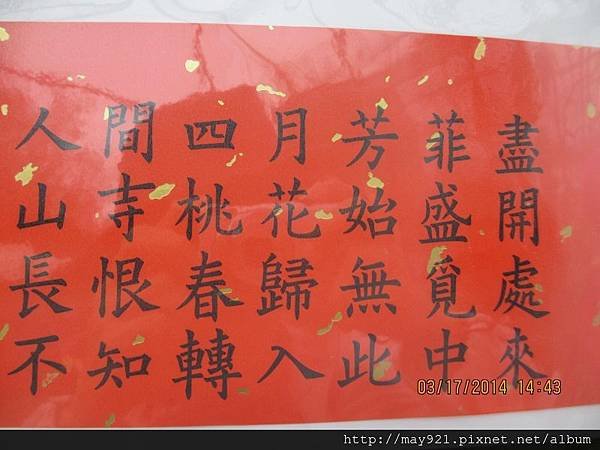 人間四月芳菲盡
山寺桃花始盛開
長恨春歸無覓處
不知轉入此中來
03/17/2014 14:43
http://may921.pixnet.net/album